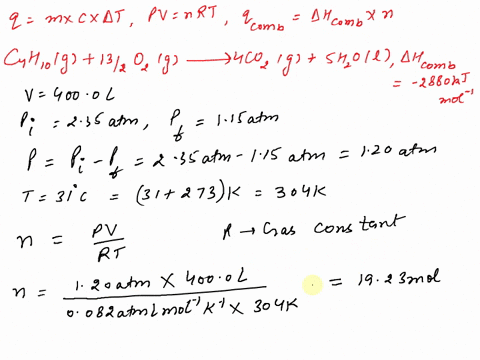 q = m×C×ΔT, PV=nRT, q comb = ΔH comb × n
C4H10(g) + 13/2 O2(g) ⟶ 4CO2(g) + 5H2O(l), ΔH comb
= -2880kJ
mol⁻¹
V = 400.0L
Pi = 2.35 atm, Pf = 1.15 atm
P = Pi - Pf = 2.35 atm - 1.15 atm = 1.20 atm
T = 31°C = (31+273)K = 304K
n = PV/RT R → Gas constant
n = 1.20 atm × 400.0L / 0.082 atm L mol⁻¹ K⁻¹ × 304K = 19.23 mol